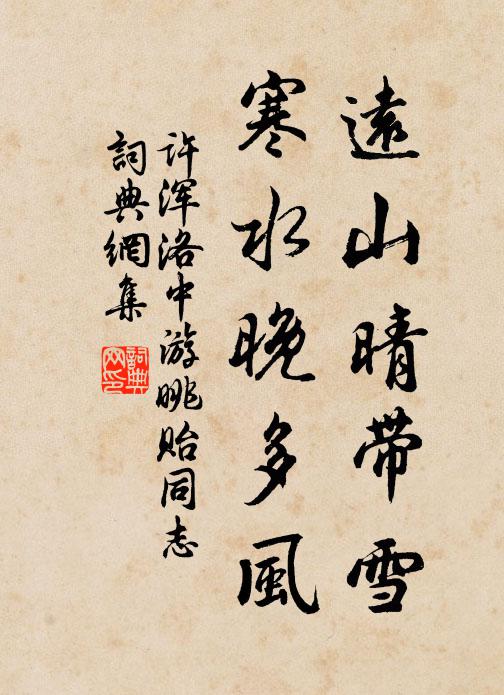 遠山晴带雪
寒水晚多風
许浑洛中游眺贻同志
詞典網集
詞典
网印